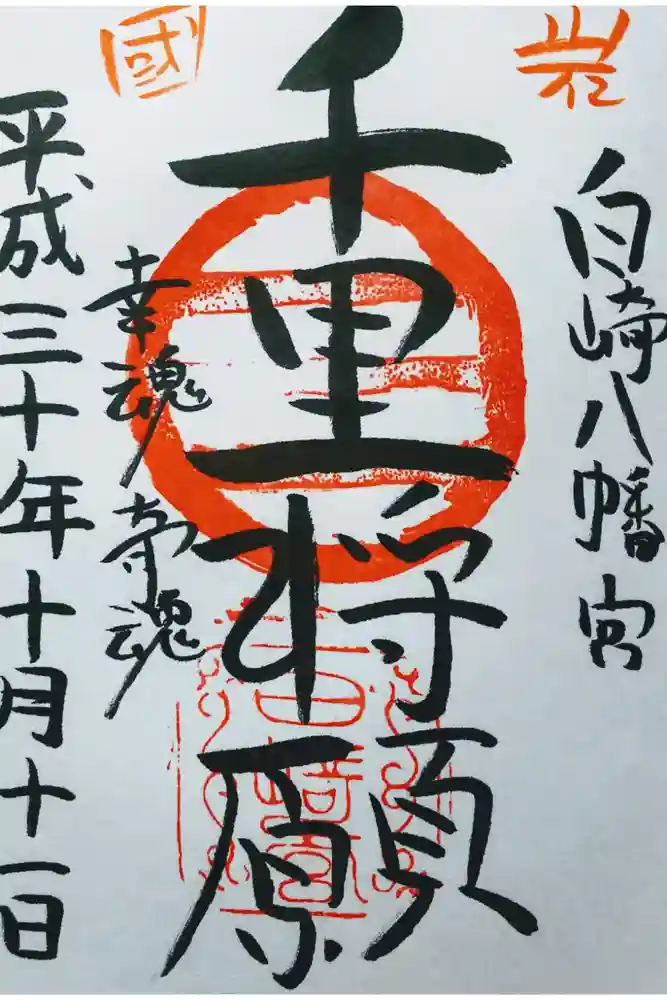 岩
國
白崎八幡宮
千里将願
幸魂
奇魂
平成三十年十月十一日